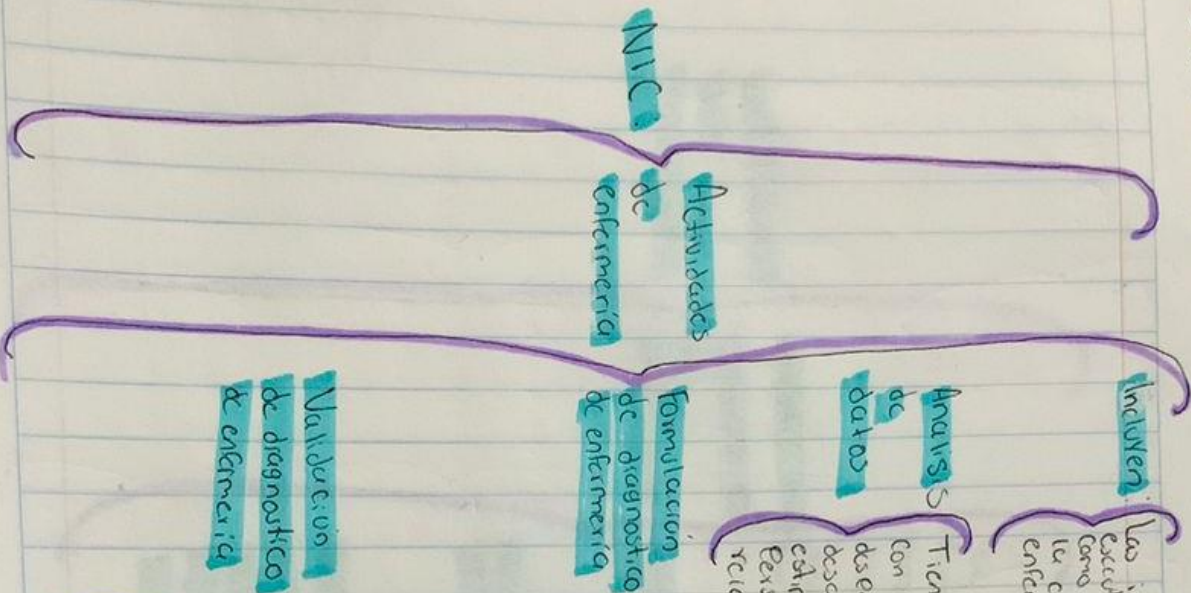 NIC
Actividades
de
enfermería
Incluyen:
Las
como
la
Analisis
de
datos
con
Formulación
de diagnostico
de enfermería
Validación
de diagnostico
de enfermería